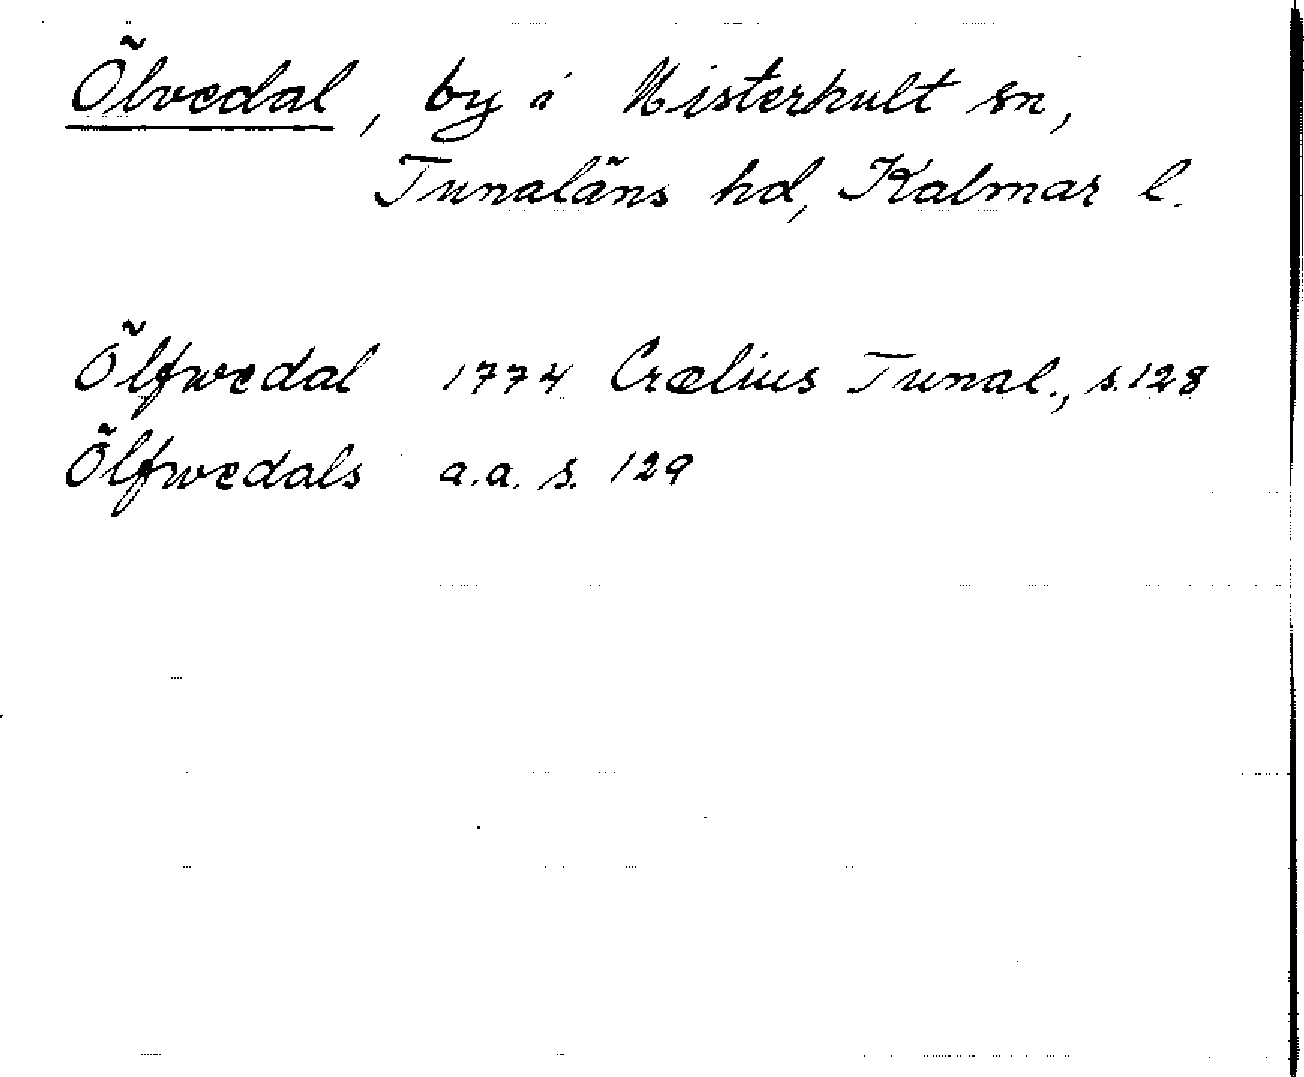 Ölvedal, by i Misterhult sn,
Tunaläns hd, Kalmar l.
Ölfwedal 1774 Crælius Tunal., s. 128
Ölfwedals a.a. s. 129